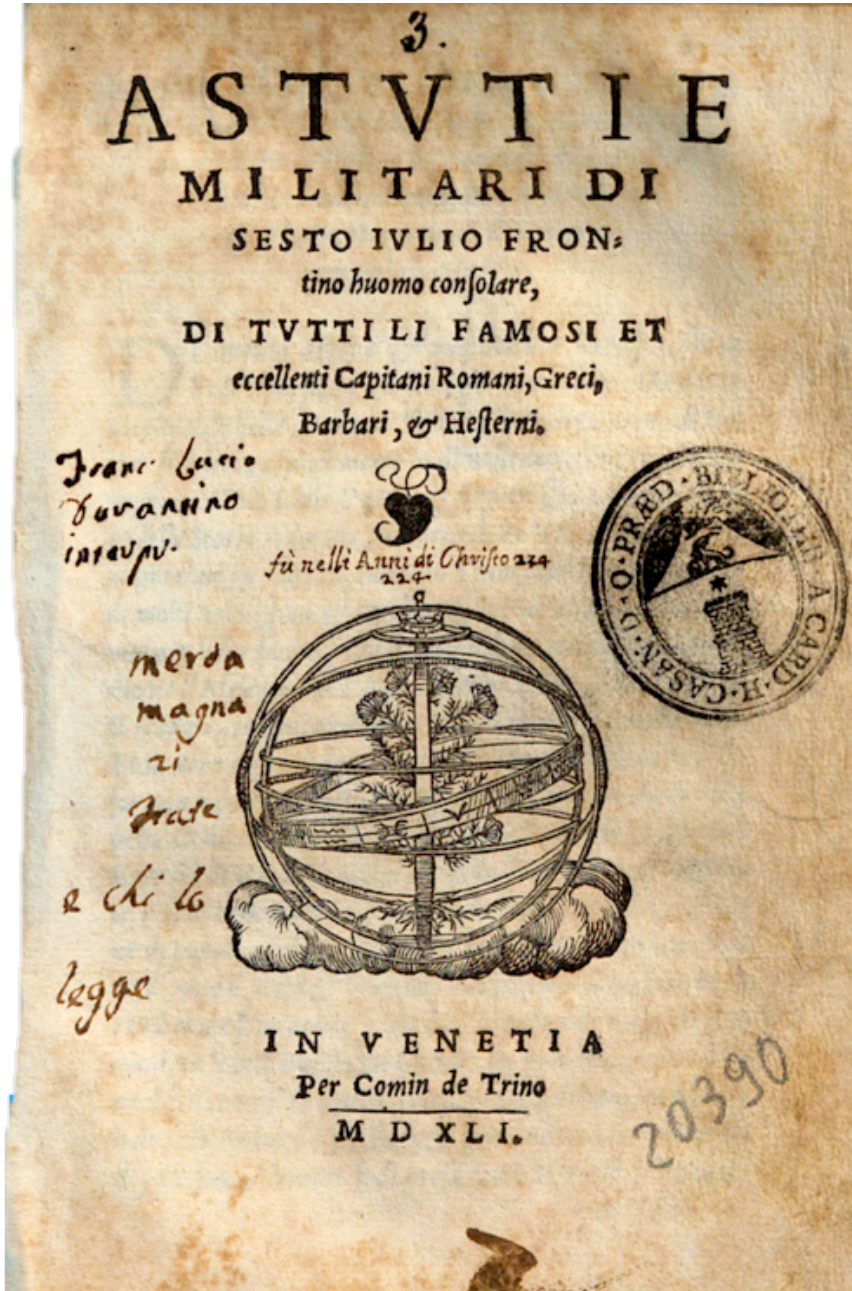 3.
ASTVTIE
MILITARI DI
SESTO IVLIO FRON=
tino huomo conſolare,
DI TVTTI LI FAMOSI ET
eccellenti Capitani Romani, Greci,
Barbari, & Heſterni.
Franc Lucio
Durantino
interpr.
fù nelli Anni di Chriſto 234
224
BIBLIOTH. A CARD. H. CASAN. D. O. PRÆD.
merda
magna
zi
frate
e chi lo
legge
IN VENETIA
Per Comin de Trino
M D XLI.
20390